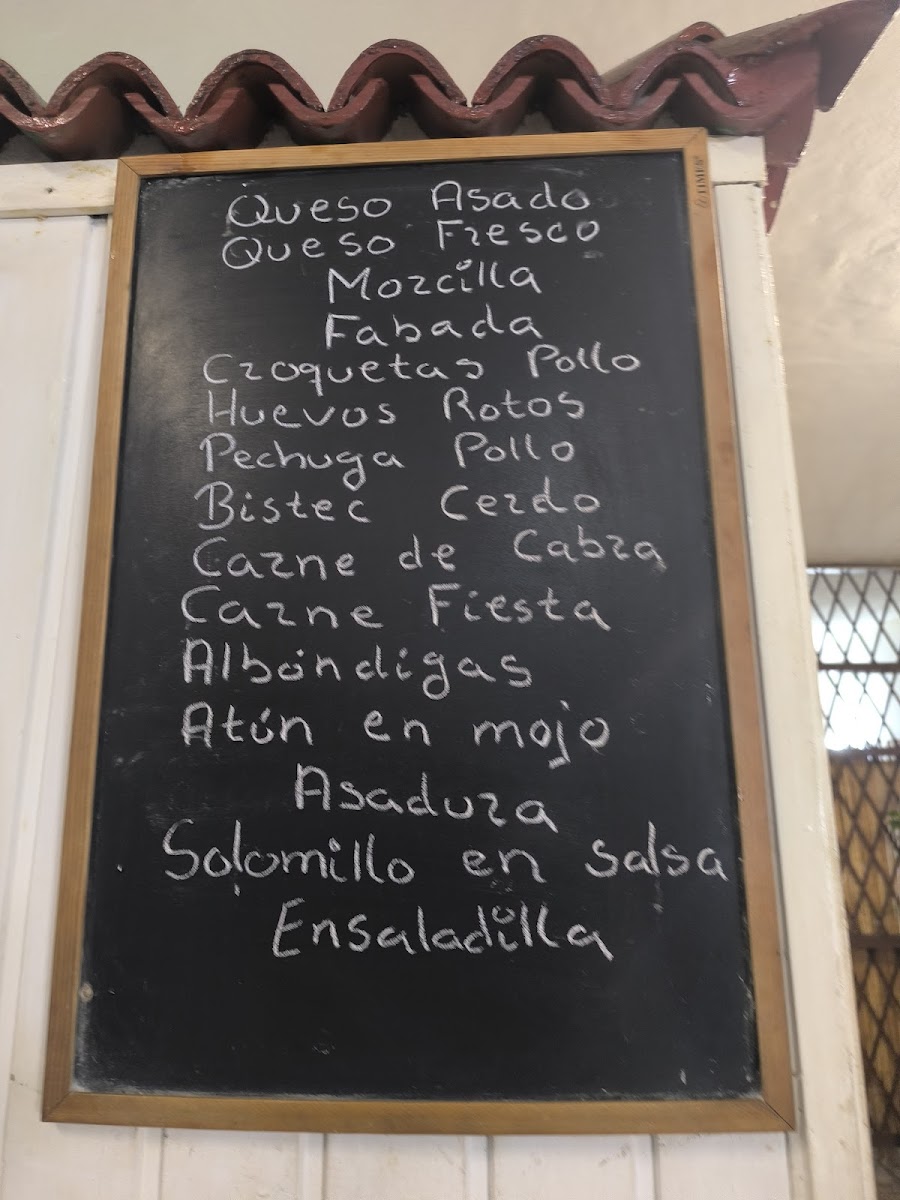 Queso Asado
Queso Fresco
Morcilla
Fabada
Croquetas Pollo
Huevos Rotos
Pechuga Pollo
Bistec Cerdo
Carne de Cabra
Carne Fiesta
Albóndigas
Atún en mojo
Asadura
Solomillo en salsa
Ensaladilla